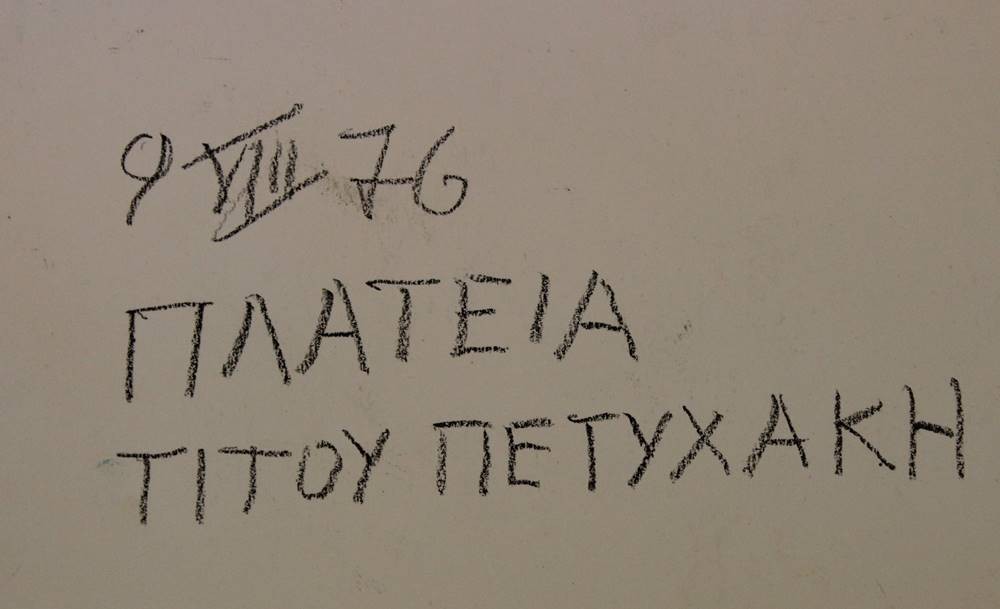 9 VIII 76
ΠΛΑΤΕΙΑ
ΤΙΤΟΥ ΠΕΤΥΧΑΚΗ